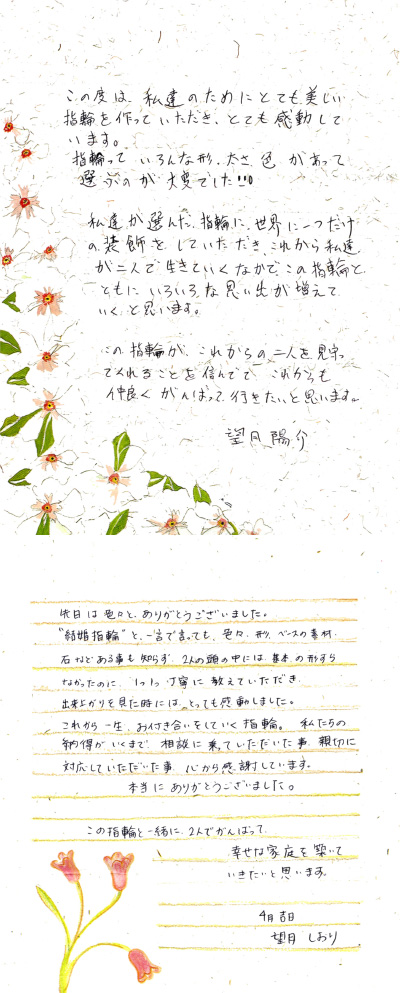 この度は、私達のためにとても美しい
指輪を作っていただき、とても感動して
います。
指輪って いろんな形、太さ、色 があって
選ぶのが 大変でした!!
私達が選んだ指輪に、世界に一つだけ
の装飾をしていただき、これから私達
が二人で生きていくなかで、この指輪と
ともにいろいろな思い出が増えて
いくと思います。
この指輪が、これからの二人を見守っ
てくれることを信じて、これからも
仲良くがんばって行きたいと思います。
望月陽介
先日は色々と、ありがとうございました。
"結婚指輪"と、一言で言っても、色々、形、ベースの素材、
石などある事も知らず、2人の頭の中には、基本の形すら
なかったのに、1つ1つ丁寧に教えていただき、
出来上がりを見た時には、とっても感動しました。
これから一生、お付き合いをしていく指輪。 私たちの
納得がいくまで、相談に乗っていただいた事、親切に
対応していただいた事、心から感謝しています。
本当にありがとうございました。
この指輪と一緒に、2人でがんばって、
幸せな家庭を築いて
いきたいと思います。
4月吉日
望月 しおり